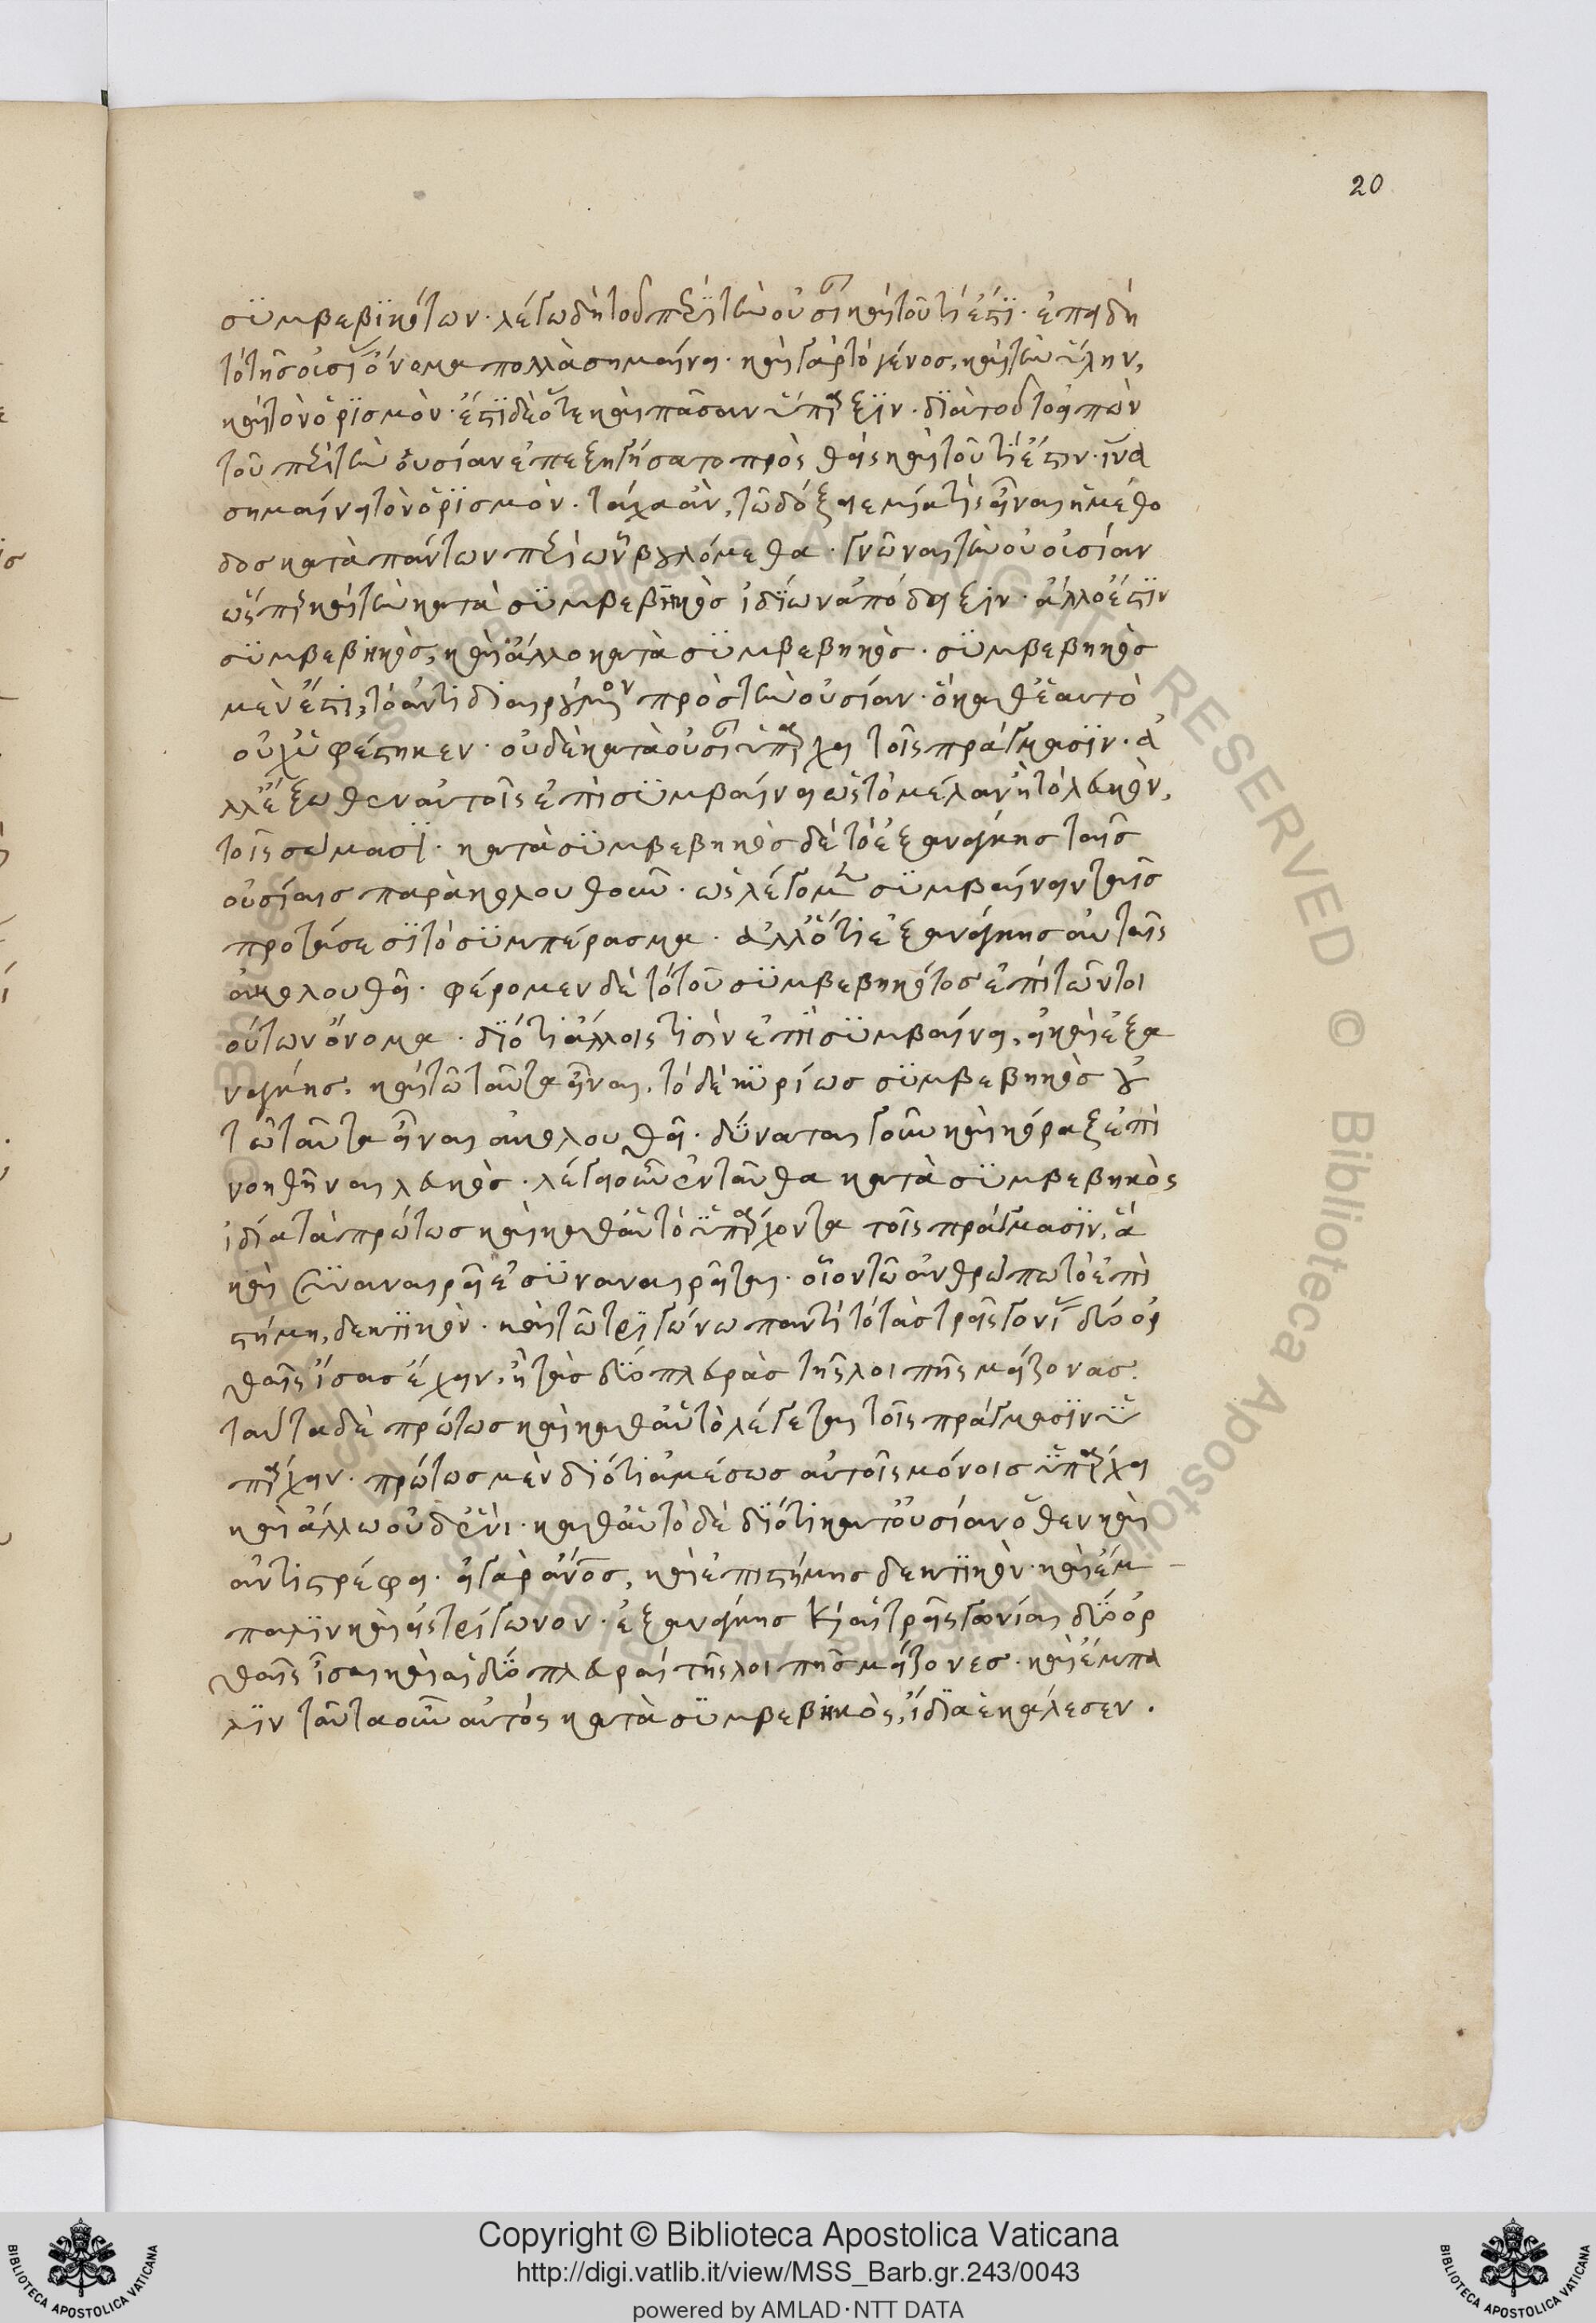 20
συμβεβηκότων. λέγω δὴ τὸ περὶ τὴν οὐσίαν καὶ τοῦ τί ἐστι. ἐπειδὴ
τὸ τῆς οὐσίας ὄνομα πολλὰ σημαίνει. καὶ γὰρ τὸ γένος, καὶ τὴν ὕλην,
καὶ τὸν ὁρισμὸν. ἔστι δὲ ὅτε καὶ πᾶσαν ὕπαρξιν. διὰ τοῦτο εἰπὼν
τοῦ περὶ τὴν οὐσίαν ἐπεξηγήσατο προσθεὶς καὶ τοῦ τί ἐστιν. ἵνα
σημαίνῃ τὸν ὁρισμὸν. τάχα ἂν, τῷ δόξειε μία τὶς εἶναι ἡ μέθο
δος κατὰ πάντων περὶ ὧν βουλόμεθα. γνῶναι τὴν οὐσίαν
ὥσπερ καὶ τὴν κατὰ συμβεβηκὸς ἰδίων ἀπόδειξιν. ἄλλο ἐστὶν
συμβεβηκὸς, καὶ ἄλλο κατὰ συμβεβηκὸς. συμβεβηκὸς
μὲν ἐστι, τὸ ἀντιδιαιρούμενον πρὸς τὴν οὐσίαν. ὃ καθ' ἑαυτὸ
οὐχ ὑφέστηκεν. οὐδὲ κατὰ οὐσίαν ὑπάρχει τοῖς πράγμασιν. ἀ
λλ' ἔξωθεν αὐτοῖς ἐπισυμβαίνει ὡς τὸ μέλαν ἢ τὸ λευκὸν,
τοῖς σώμασι. κατὰ συμβεβηκὸς δὲ τὸ ἐξ ἀνάγκης ταῖς
οὐσίαις παρακολουθοῦν. ὡς λέγομεν συμβαίνειν ταῖς
προτάσεσι τὸ συμπέρασμα. ἀλλ' ὅτι ἐξ ἀνάγκης αὐταῖς
ἀκολουθεῖ. φέρομεν δὲ τὸ τοῦ συμβεβηκότος ἐπὶ τῶν τοι
ούτων ὄνομα. διότι ἄλλοις τισὶν ἐπισυμβαίνει, εἰ καὶ ἐξ ἀ
νάγκης. καὶ τῷ ταῦτα εἶναι. τὸ δὲ κυρίως συμβεβηκὸς οὐ
τῷ ταῦτα εἶναι ἀκολουθεῖ. δύναται γοῦν καὶ κόραξ ἐπι
νοηθῆναι λευκὸς. λέγει οὖν ἐνταῦθα κατὰ συμβεβηκὸς
ἴδια τὰ πρώτως καὶ καθ' αὑτὸ ὑπάρχοντα τοῖς πράγμασιν, ἃ
καὶ συναναιρεῖ ἐ συναναιρεῖται. οἷον τῷ ἀνθρώπῳ τὸ ἐπι
στήμη, δεκτικὸν. καὶ τῷ τριγώνῳ παντὶ τὸ τὰς τρεῖς γωνίας δύο ὀρ
θαῖς ἴσας ἔχειν, ἢ τὰς δύο πλευρὰς τῆς λοιπῆς μείζονας.
ταῦτα δὲ πρώτως καὶ καθ' αὑτὸ λέγεται τοῖς πράγμασιν ὑ
πάρχειν. πρώτως μὲν διότι ἀμέσως αὐτοῖς μόνοις ὑπάρχει
καὶ ἄλλῳ οὐδενὶ. καθ' αὑτὸ δὲ διότι κατ' οὐσίαν ὅθεν καὶ
ἀντιστρέφει. εἰ γὰρ ἄνος, καὶ ἐπιστήμης δεκτικὸν. καὶ ἔμ
παλιν καὶ εἰς τρίγωνον. ἐξ ἀνάγκης καὶ αἱ τρεῖς γωνίαι δύο ὀρ
θαῖς ἴσαι καὶ αἱ δύο πλευραὶ τῆς λοιπῆς μείζονες. καὶ ἔμπα
λιν ταῦτα οὖν αὐτὸς κατὰ συμβεβηκὸς, ἴδια ἐκάλεσεν.
Copyright © Biblioteca Apostolica Vaticana
http://digi.vatlib.it/view/MSS_Barb.gr.243/0043
powered by AMLAD·NTT DATA